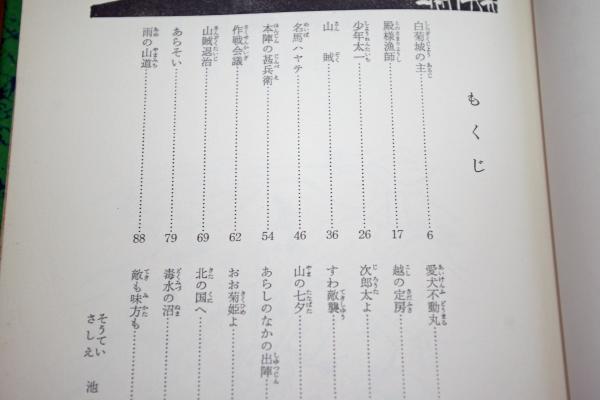 もくじ
白菊城の主 6
殿様漁師 17
少年太一 26
山賊 36
名馬ハヤテ 46
本陣の甚兵衛 54
作戦会議 62
山賊退治 69
あらそい 79
雨の山道 88
愛犬不動丸
越の定房
次郎太よ
すわ敵襲
山の七夕
あらしのなかの出陣
おお菊姫よ
北の国へ
毒水の沼
敵も味方も
そうてい
さしえ 池